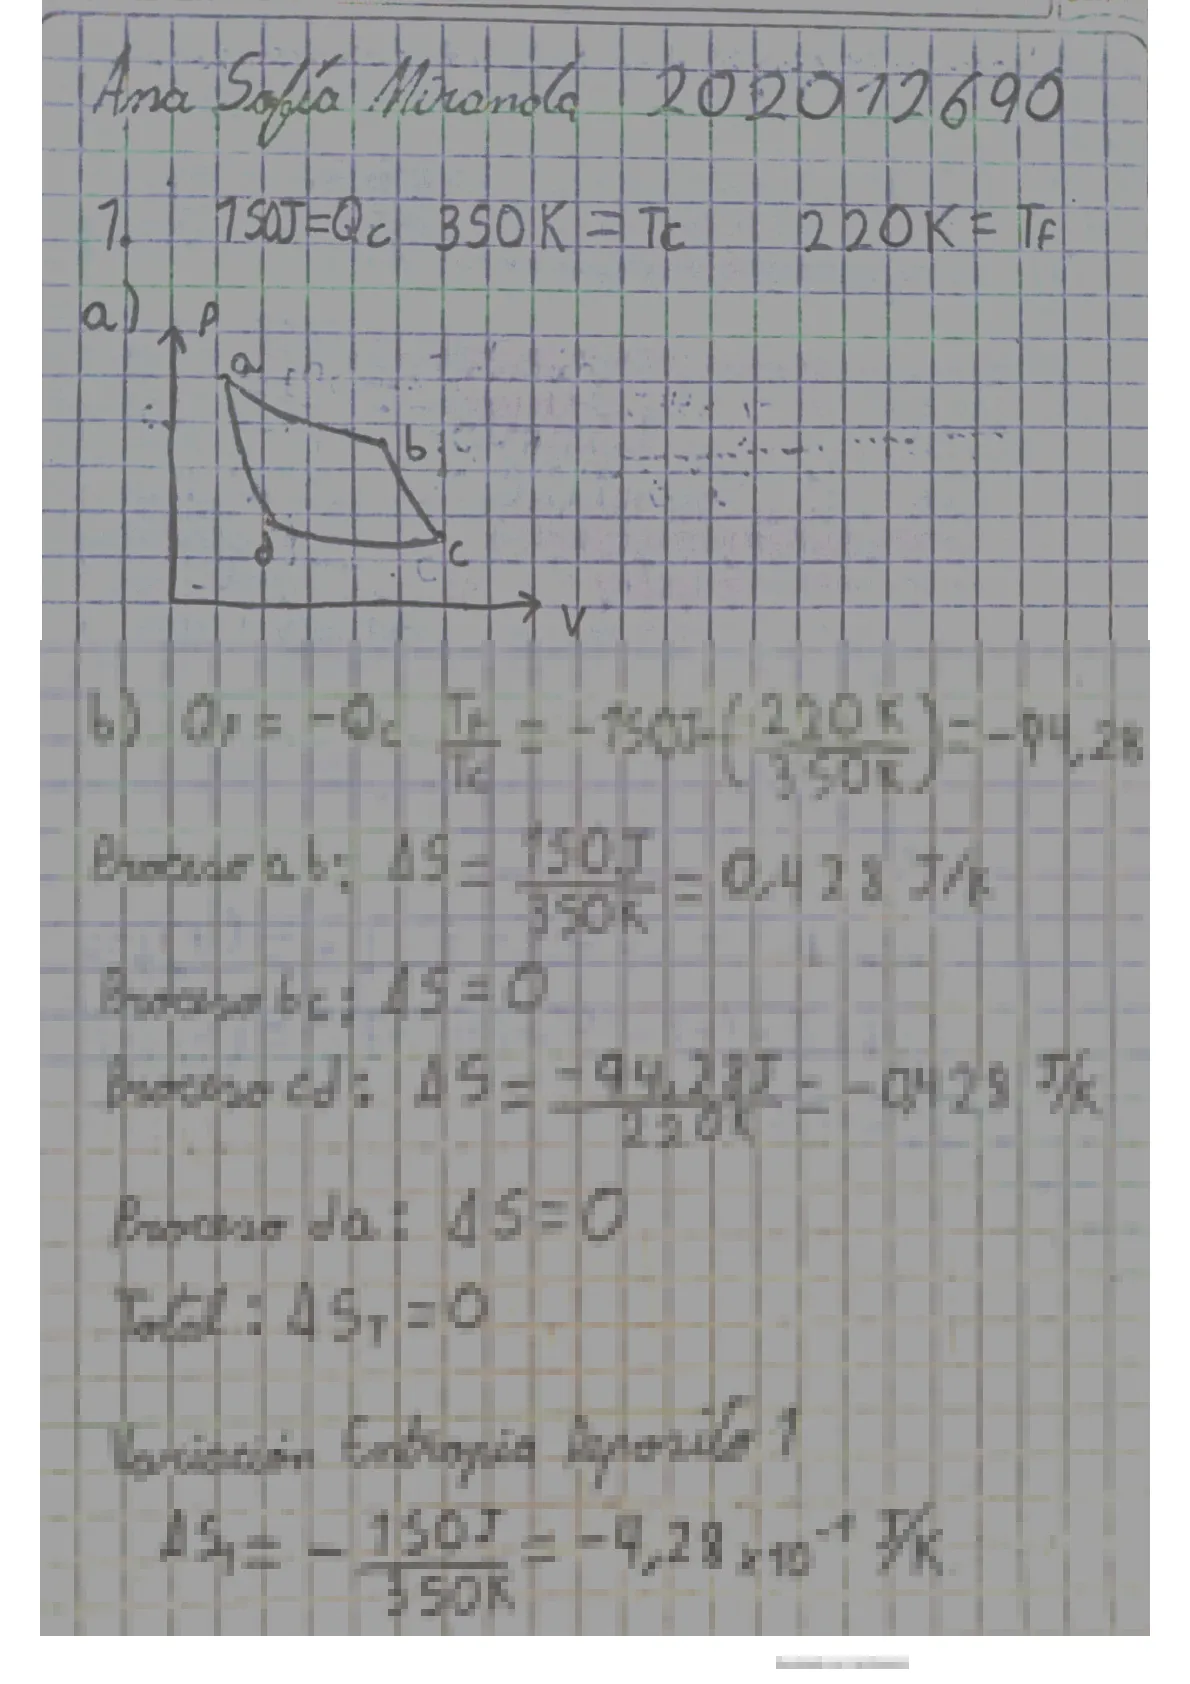 Ana Sofía Miranda 202012690
1. 150J=Qc 350K = Tc 220K = TF
a)
P
a
b
d
c
V
b) QF = -Qc TF/Tc = -150J·(220K/350K) = -94,28
Proceso ab: ΔS = 150J/350K = 0,428 J/K
Proceso bc: ΔS = 0
Proceso cd: ΔS = -94,28J/220K = -0,428 J/K
Proceso da: ΔS = 0
Total: ΔST = 0
Variación Entropía Deposito 1
ΔS1 = - 150J/350K = -4,28 x10⁻¹ J/K